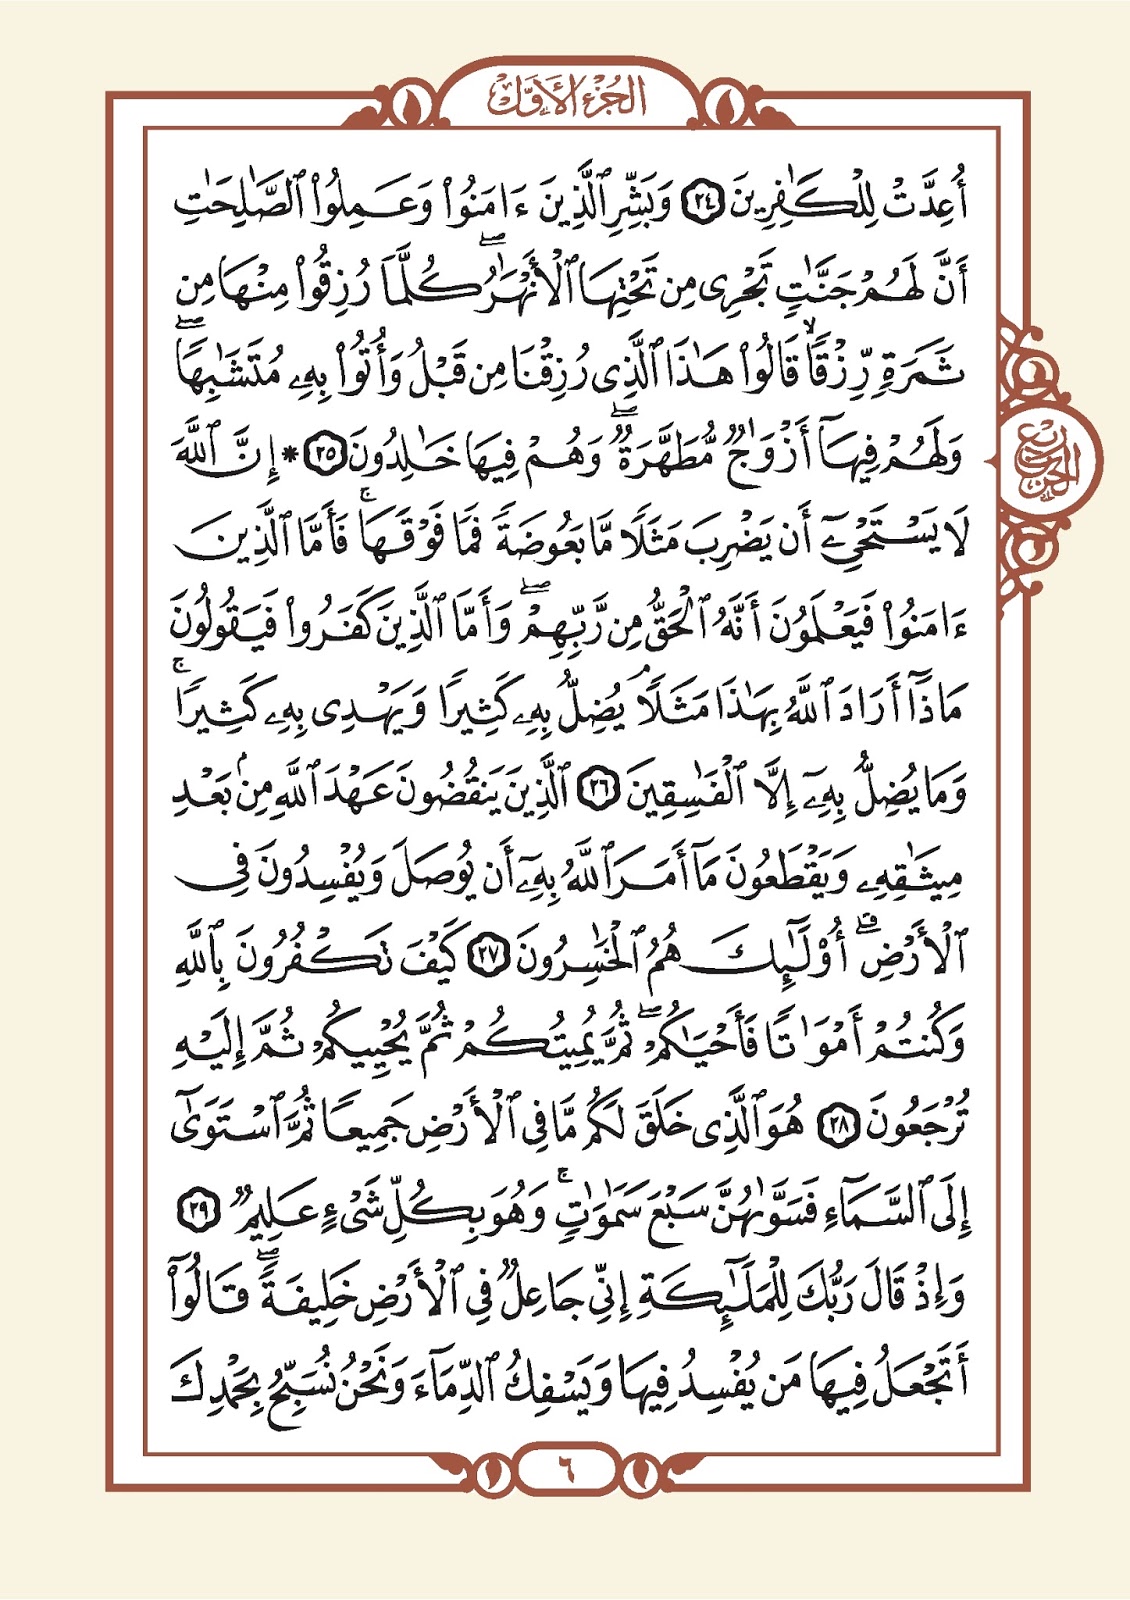 الجزء الأول
أُعِدَّتْ لِلْكَٰفِرِينَ ٢٤ وَبَشِّرِ ٱلَّذِينَ ءَامَنُوا۟ وَعَمِلُوا۟ ٱلصَّٰلِحَٰتِ
أَنَّ لَهُمْ جَنَّٰتٍ تَجْرِى مِن تَحْتِهَا ٱلْأَنْهَٰرُ ۖ كُلَّمَا رُزِقُوا۟ مِنْهَا مِن
ثَمَرَةٍ رِّزْقًا ۙ قَالُوا۟ هَٰذَا ٱلَّذِى رُزِقْنَا مِن قَبْلُ وَأُتُوا۟ بِهِۦ مُتَشَٰبِهًا ۖ
وَلَهُمْ فِيهَآ أَزْوَٰجٌ مُّطَهَّرَةٌ ۖ وَهُمْ فِيهَا خَٰلِدُونَ ٢٥ * إِنَّ ٱللَّهَ
لَا يَسْتَحْىِۦٓ أَن يَضْرِبَ مَثَلًا مَّا بَعُوضَةً فَمَا فَوْقَهَا ۚ فَأَمَّا ٱلَّذِينَ
ءَامَنُوا۟ فَيَعْلَمُونَ أَنَّهُ ٱلْحَقُّ مِن رَّبِّهِمْ ۖ وَأَمَّا ٱلَّذِينَ كَفَرُوا۟ فَيَقُولُونَ
مَاذَآ أَرَادَ ٱللَّهُ بِهَٰذَا مَثَلًا ۘ يُضِلُّ بِهِۦ كَثِيرًا وَيَهْدِى بِهِۦ كَثِيرًا ۚ
وَمَا يُضِلُّ بِهِۦٓ إِلَّا ٱلْفَٰسِقِينَ ٢٦ ٱلَّذِينَ يَنقُضُونَ عَهْدَ ٱللَّهِ مِنۢ بَعْدِ
مِيثَٰقِهِۦ وَيَقْطَعُونَ مَآ أَمَرَ ٱللَّهُ بِهِۦٓ أَن يُوصَلَ وَيُفْسِدُونَ فِى
ٱلْأَرْضِ ۚ أُو۟لَٰٓئِكَ هُمُ ٱلْخَٰسِرُونَ ٢٧ كَيْفَ تَكْفُرُونَ بِٱللَّهِ
وَكُنتُمْ أَمْوَٰتًا فَأَحْيَٰكُمْ ۖ ثُمَّ يُمِيتُكُمْ ثُمَّ يُحْيِيكُمْ ثُمَّ إِلَيْهِ
تُرْجَعُونَ ٢٨ هُوَ ٱلَّذِى خَلَقَ لَكُم مَّا فِى ٱلْأَرْضِ جَمِيعًا ثُمَّ ٱسْتَوَىٰٓ
إِلَى ٱلسَّمَآءِ فَسَوَّىٰهُنَّ سَبْعَ سَمَٰوَٰتٍ ۚ وَهُوَ بِكُلِّ شَىْءٍ عَلِيمٌ ٢٩
وَإِذْ قَالَ رَبُّكَ لِلْمَلَٰٓئِكَةِ إِنِّى جَاعِلٌ فِى ٱلْأَرْضِ خَلِيفَةً ۖ قَالُوٓا۟
أَتَجْعَلُ فِيهَا مَن يُفْسِدُ فِيهَا وَيَسْفِكُ ٱلدِّمَآءَ وَنَحْنُ نُسَبِّحُ بِحَمْدِكَ
٦